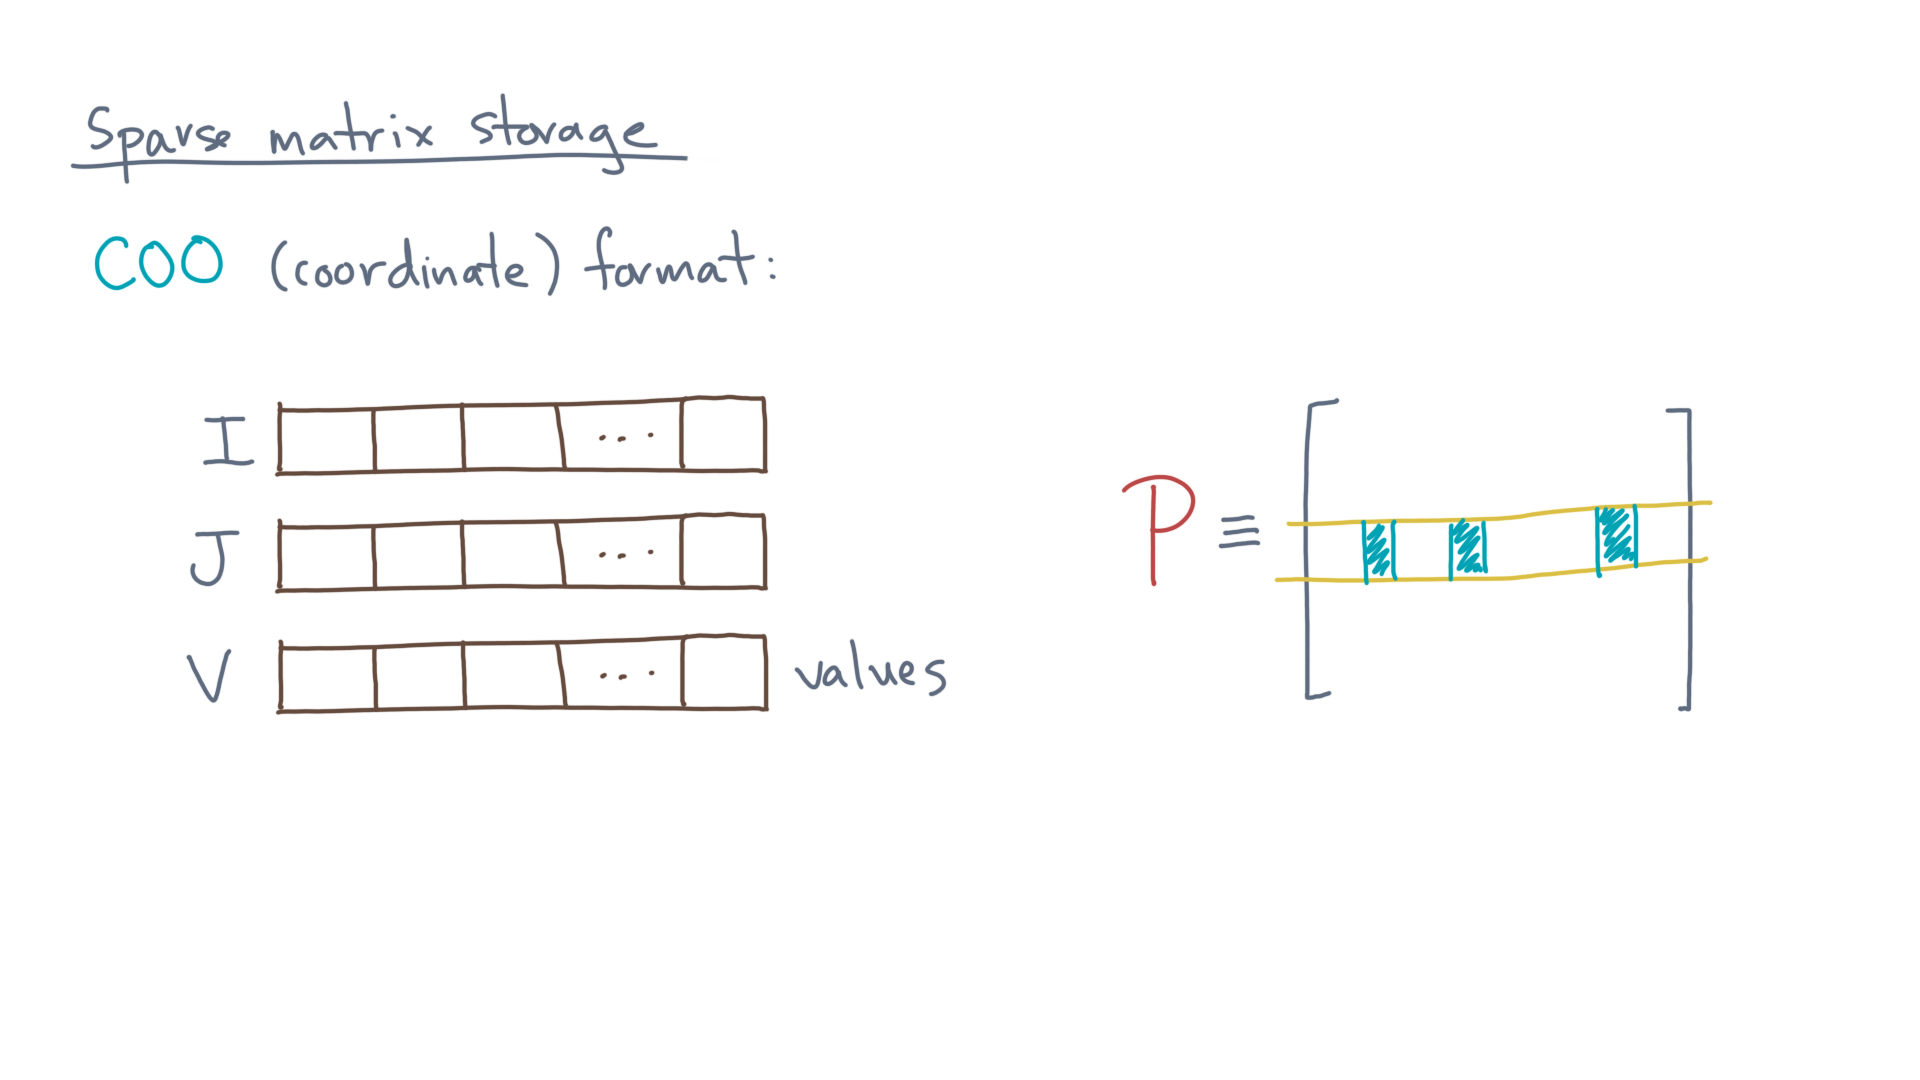 Sparse matrix storage
COO (coordinate) format:
I ...
J ...
V ... values
P ≡